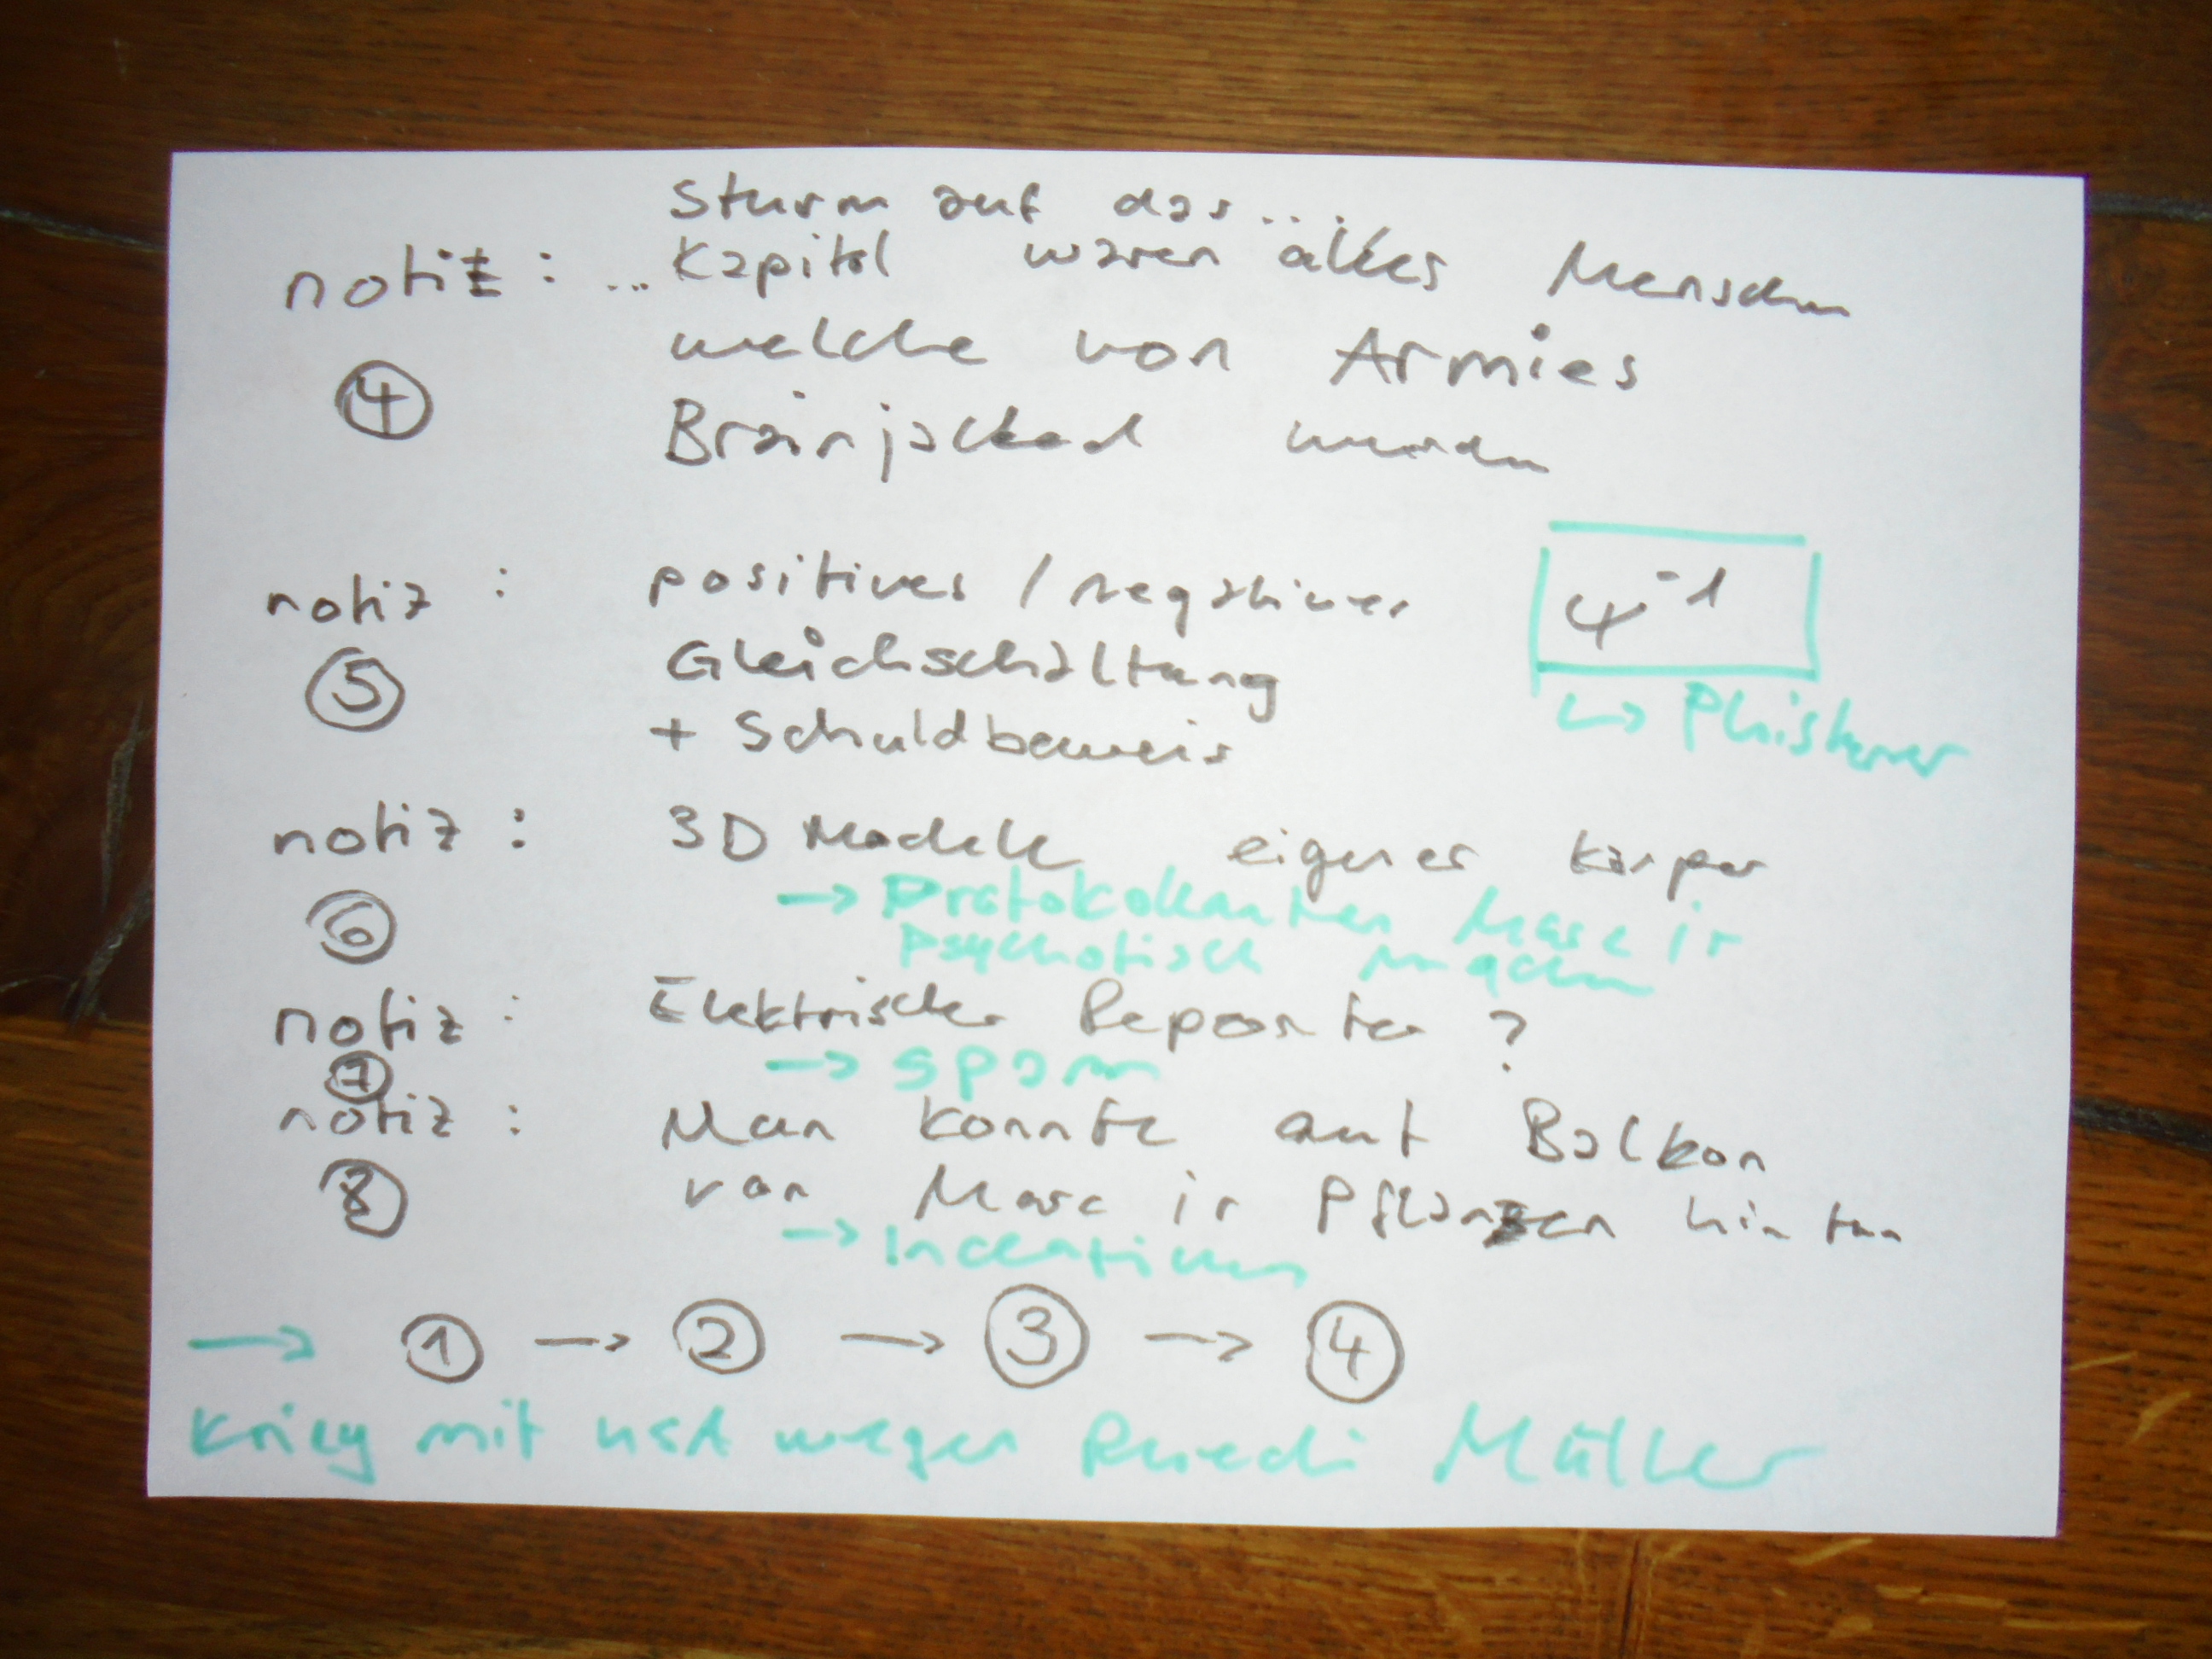 sturm auf das...
notiz : ... Kapitol waren alles Menschen
④ welche von Armies
Brainjacked wurden
notiz : positives / negatives
⑤ Gleichschaltung
+ Schuldbeweis
4⁻¹
↳
notiz : 3D Modelle eigener Körper
⑥ → Protokollanten Marc ir
Psychotisch machen
notiz : Elektrischer Reporter ?
⑦ → spam
notiz : Man konnte auf Balkon
⑧ von Marc ir Pflanzen hin tun
→ Incentives
→ ① → ② → ③ → ④
Krieg mit USA wegen Ruedi Müller